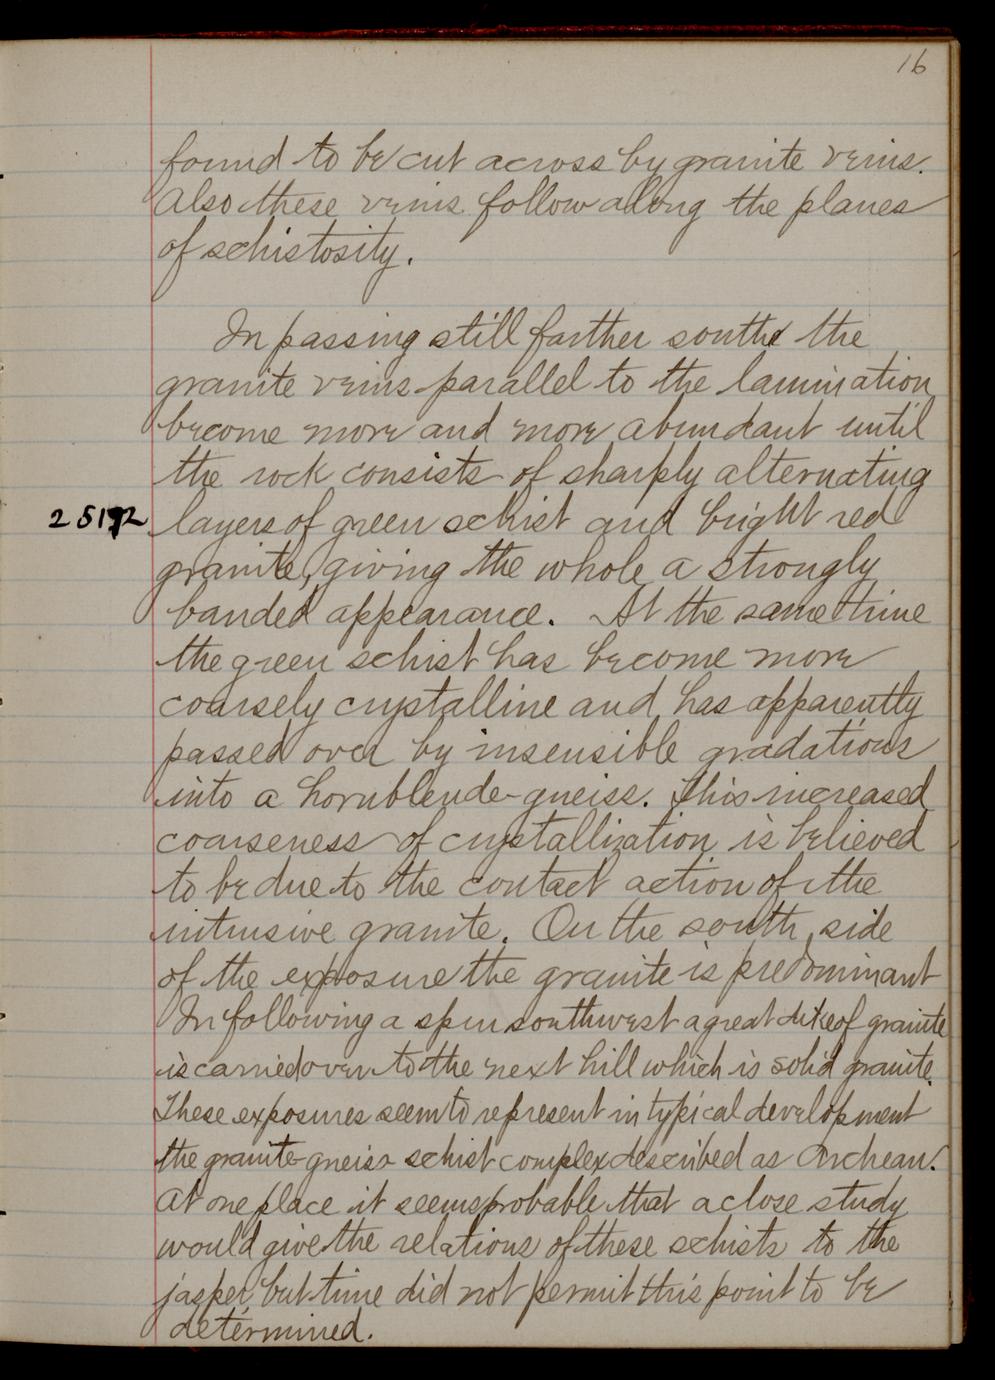 16
found to be cut across by granite veins.
Also these veins follow along the planes
of schistosity.
In passing still farther south the
granite veins parallel to the lamination
become more and more abundant until
the rock consists of sharply alternating
25192 layers of green schist and bright red
granite, giving the whole a strongly
banded appearance. At the same time
the green schist has become more
coarsely crystalline and has apparently
passed over by insensible gradations
into a hornblende-gneiss. This increased
coarseness of crystallization is believed
to be due to the contact action of the
intrusive granite. On the south side
of the exposure the granite is predominant
In following a spur southwest a great dike of granite
is carried over to the next hill which is solid granite.
These exposures seem to represent in typical development
the granite-gneiss schist complex described as Archean.
At one place it seems probable that a close study
would give the relations of these schists to the
jasper, but time did not permit this point to be
determined.